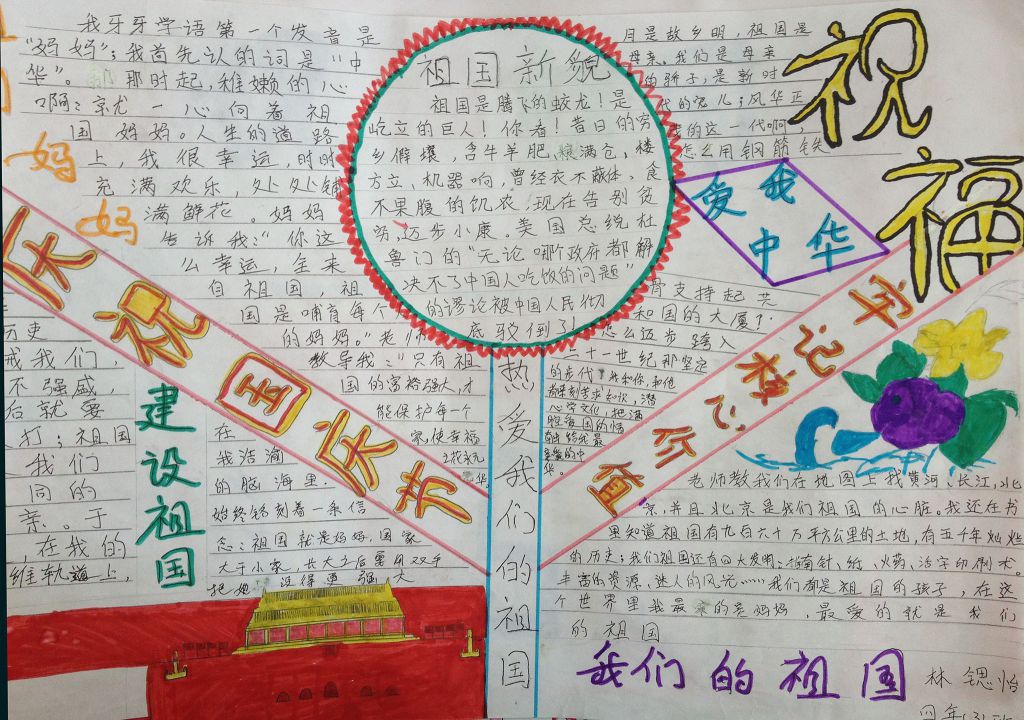 我牙牙学语第一个发音是
“妈妈”；我首先认的词是“中
华”。 那时起，稚嫩的心
啊：京尤一心向着祖
国妈妈。人生的道路
上，我很幸运，时时
充满欢乐，处处铺
满鲜花。妈妈
告诉我：“你这
么幸运，全来
自祖国，祖
国是哺育每个
的妈妈。”老师
教导我：“只有祖
国的富裕强大，才
能保护每一个
家，使幸福
之花永元
妈
妈
祖国新貌
祖国是腾飞的蛟龙！是
屹立的巨人！你看！昔日的穷
乡僻壤，含牛羊肥，粮满仓，楼
方立，机器响，曾经衣不蔽体，食
不果腹的饥农，现在告别贫
穷，迈步小康。美国总统杜
鲁门的“无论哪个政府都解
决不了中国人吃饭的问题”
的谬论被中国人民彻
底驳倒了！
月是故乡明，祖国是
母亲。我们是母亲
的骄子，是新时
代的宠儿；风华正
的这一代啊，
怎么用钢筋铁
骨支持起共
和国的大厦？
怎么迈步跨入
二十一世纪那坚定
的步代
祝
福
爱我
中华
庆祝国庆节
牢记核心价值
历史
戒我们，
不强盛，
后就要
打；祖国
我们
同的
亲。于
，在我的
维轨道上，
建设祖国
在
我浩瀚
的脑海里，
始终铭刻着一条信
念：祖国就是妈妈，国家
大于小家，长大之后要用双手
把她 设得更强大
热爱我们的祖国
老师教我们在地图上找黄河、长江，北
京，并且北京是我们祖国的心脏。我还在书
里知道祖国有九百六十万平方公里的土地，有五千年灿烂
的历史；我们祖国还有四大发明：指南针、纸、火药、活字印刷术。
丰富的资源，迷人的风光……我们都是祖国的孩子，在这
个世界里我最亲的是妈妈，最爱的就是我们
的祖国
我们的祖国
林锶怡
四年(3)班